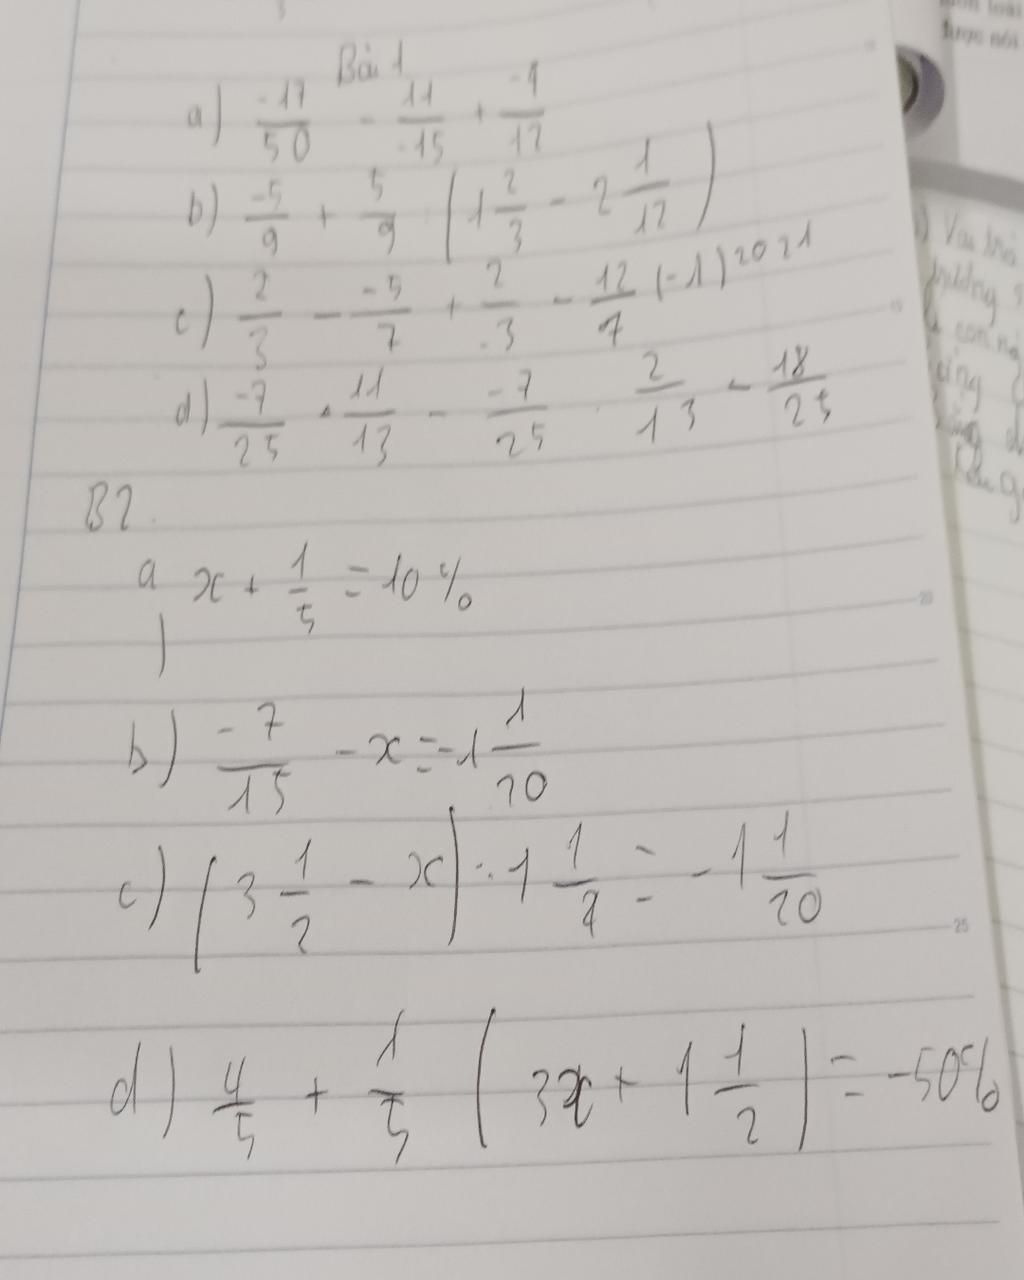 Bài 1
a) -17/50 - 11/-15 + -1/12
b) -5/9 + 5/9 . (1 2/3 - 2 1/12)
c) 2/3 - -5/7 + 2/-3 - 12/7 (-1)^2021
d) -7/25 . 11/13 - -7/25 . 2/13 - 18/25
B2.
a) x + 1/5 = 10%
b) -7/15 - x = -1 1/20
c) (3 1/2 - x) : 1 1/7 = -1 1/20
d) 4/5 + 1/5 (3x + 1 1/2) = -50%